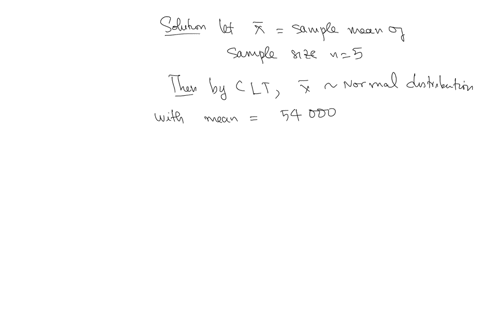 Solution let x̄ = sample mean of
sample size n=5
Then by CLT, x̄ ~ Normal distribution
with mean = 54 000